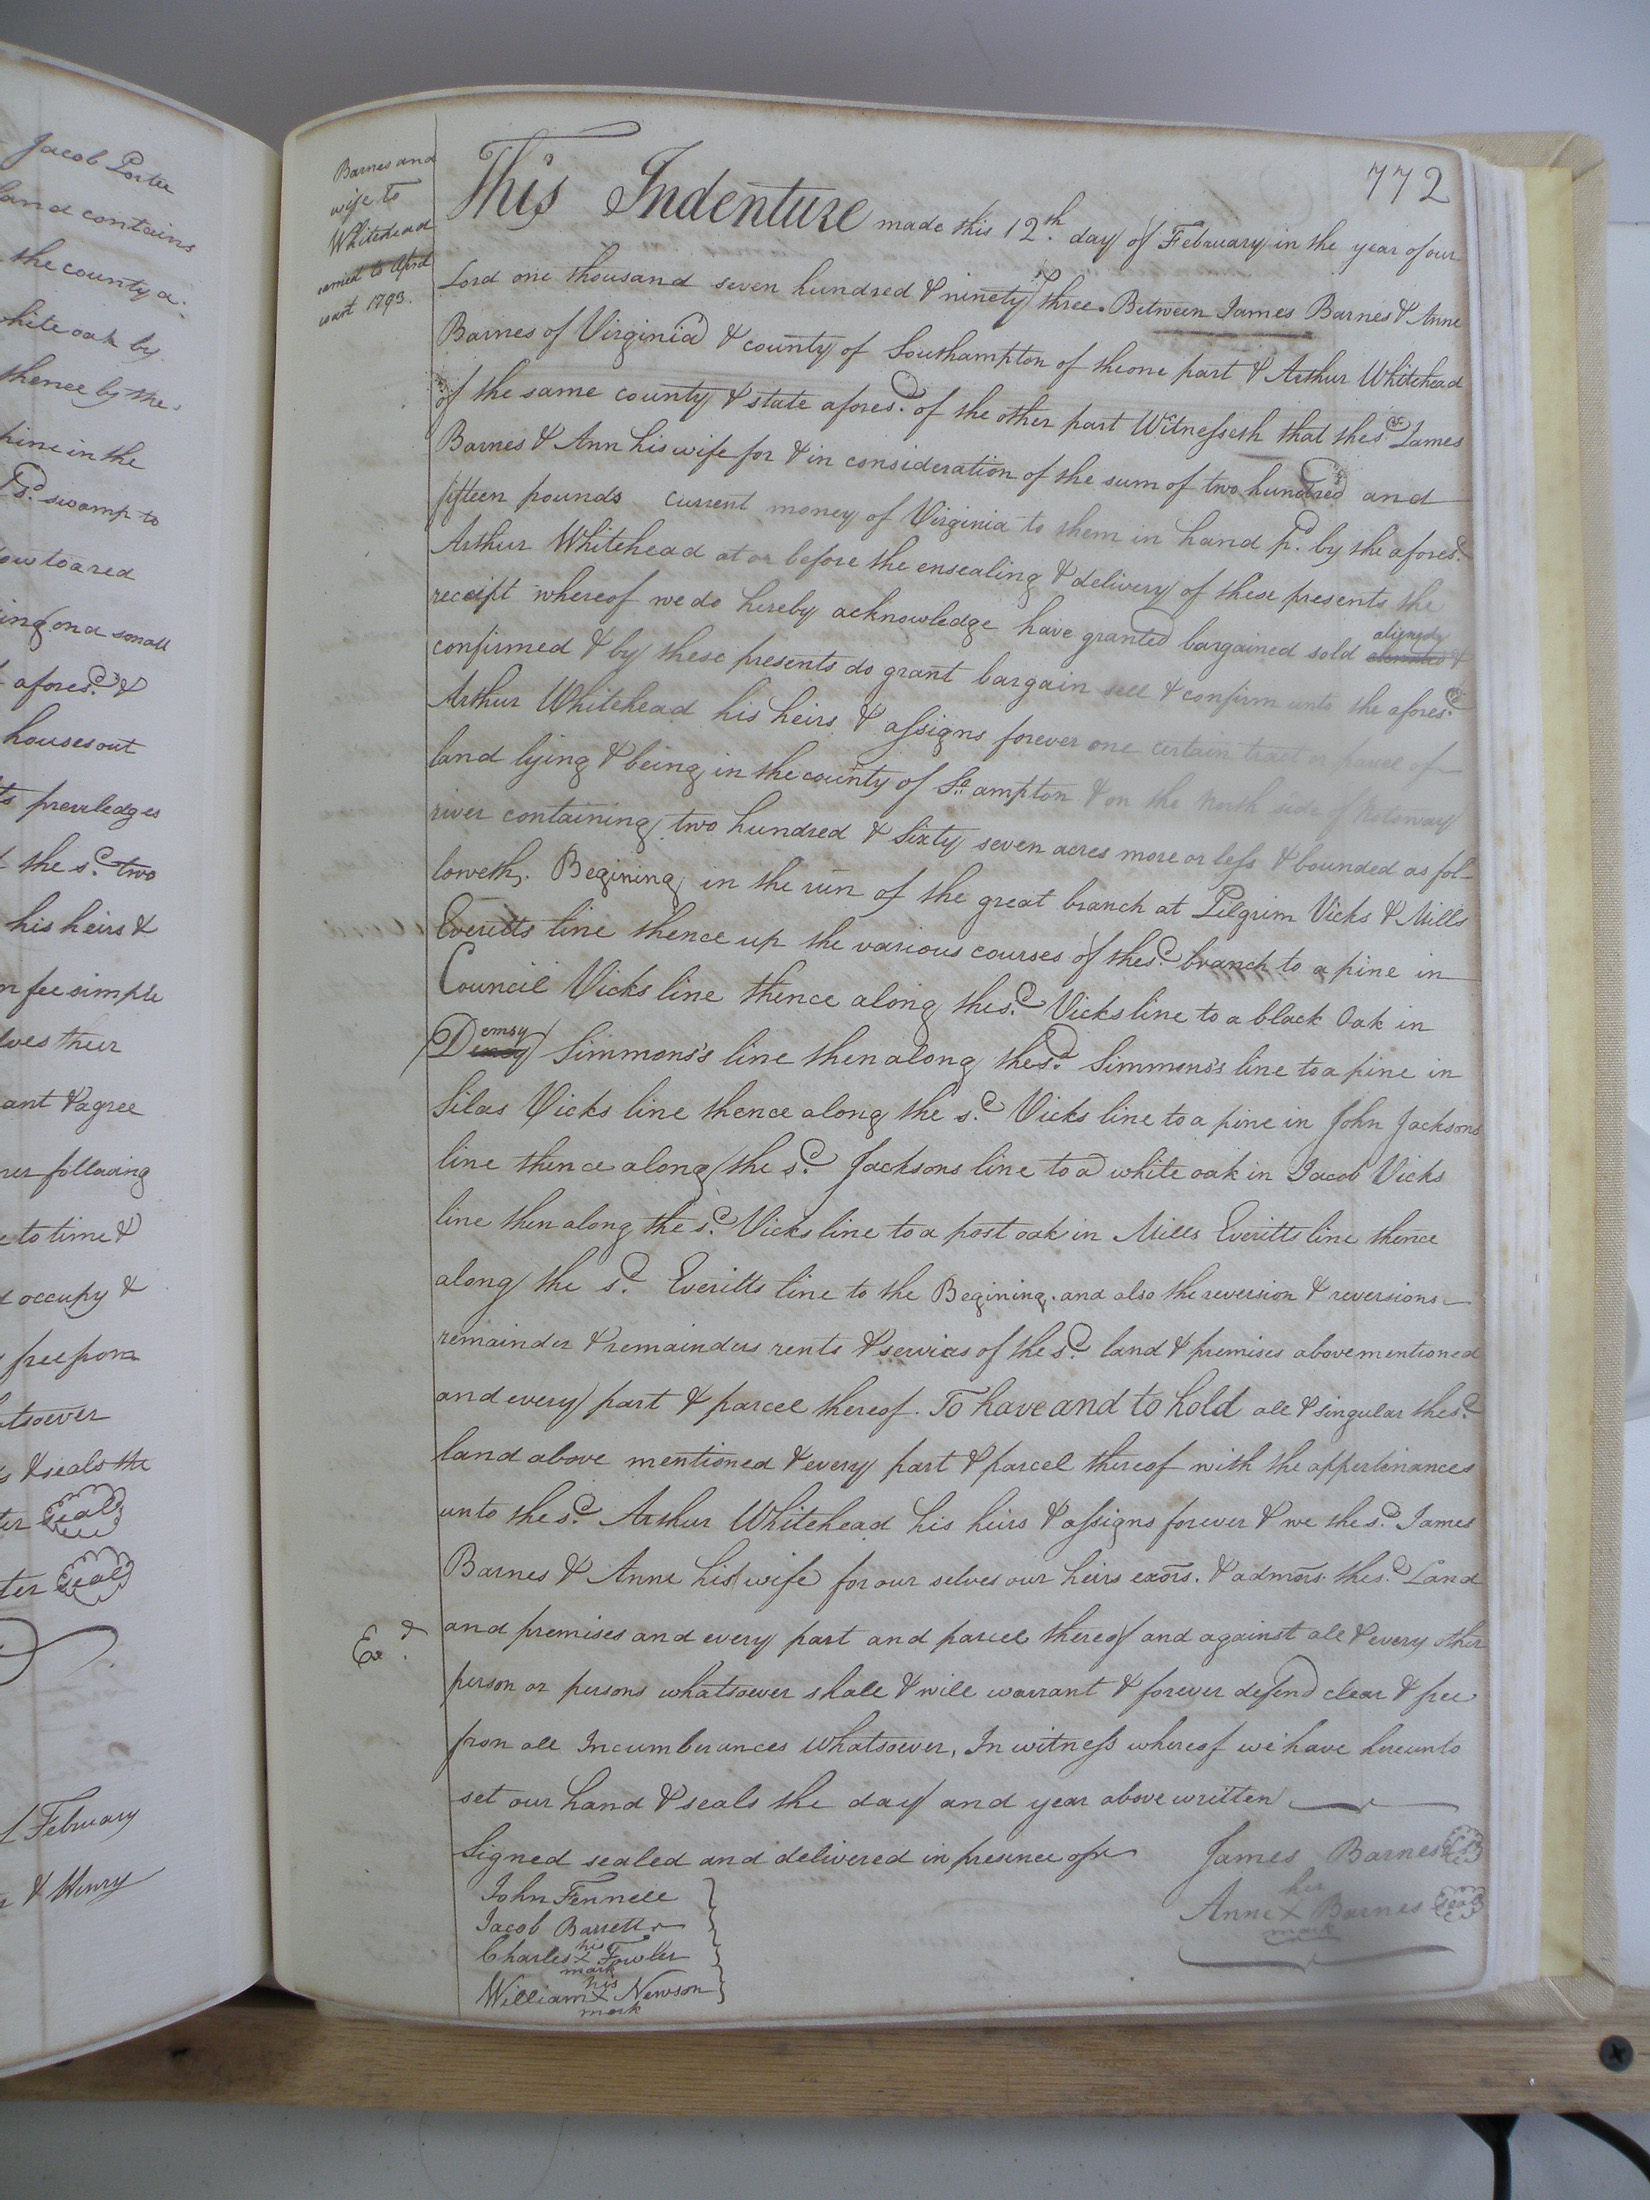 Jacob Porter
land contains
the county a
hite oak by
thence by the
pine in the
sd. swamp to
ow to a red
ing on a small
afores.d &
houses out
ts previledges
the s.d two
his heirs &
n fee simple
lves their
ant & agree
ner following
e to time &
d occupy &
free from
atsoever
s & seals the
ter Seal
ter Seal
f February
& Henry
772
Barnes and
wife to
Whitehead
carried to April
court 1793.
This Indenture made this 12th. day of February in the year of our
Lord one thousand seven hundred & ninety three. Between James Barnes & Anne
Barnes of Virginia & county of Southampton of the one part & Arthur Whitehead
of the same county & state afores.d of the other part Witnesseth that the s.d James
Barnes & Ann his wife for & in consideration of the sum of two hundred and
fifteen pounds current money of Virginia to them in hand p.d by the afores.d
Arthur Whitehead at or before the ensealing & delivery of these presents the
receipt whereof we do hereby acknowledge have granted bargained sold &
confirmed & by these presents do grant bargain sell & confirm unto the afores.d
Arthur Whitehead his heirs & assigns forever one certain tract or parcel of
land lying & being in the county of So.ampton & on the North side of Notoway
river containing two hundred & Sixty seven acres more or less & bounded as fol-
loweth. Begining in the run of the great branch at Pilgrim Vicks & Mills
Everitts line thence up the various courses of the s.d branch to a pine in
Council Vicks line thence along the s.d Vicks line to a black Oak in
Demsy Simmons's line then along the s.d Simmons's line to a pine in
Silas Vicks line thence along the s.d Vicks line to a pine in John Jacksons
line thence along the s.d Jacksons line to a white oak in Jacob Vicks
line then along the s.d Vicks line to a post oak in Mills Everitts line thence
along the s.d Everitts line to the Begining. and also the reversion & reversions
remainder & remainders rents & services of the s.d land & premises above mentioned
and every part & parcel thereof. To have and to hold all & singular the s.d
land above mentioned & every part & parcel thereof with the appertinances
unto the s.d Arthur Whitehead his heirs & assigns forever & we the s.d James
Barnes & Anne his wife for our selves our heirs exors. & admors. the s.d Land
Ex.d
and premises and every part and parcel thereof and against all & every other
person or persons whatsoever shall & will warrant & forever defend clear & free
from all Incumberances whatsoever, In witness whereof we have hereunto
set our hand & seals the day and year above written
Signed sealed and delivered in presence of
James Barnes
her
Anne X Barnes Seal
mark
John Fennell
Jacob Barrett
his
Charles X Fowler
mark
his
William X Newson
mark